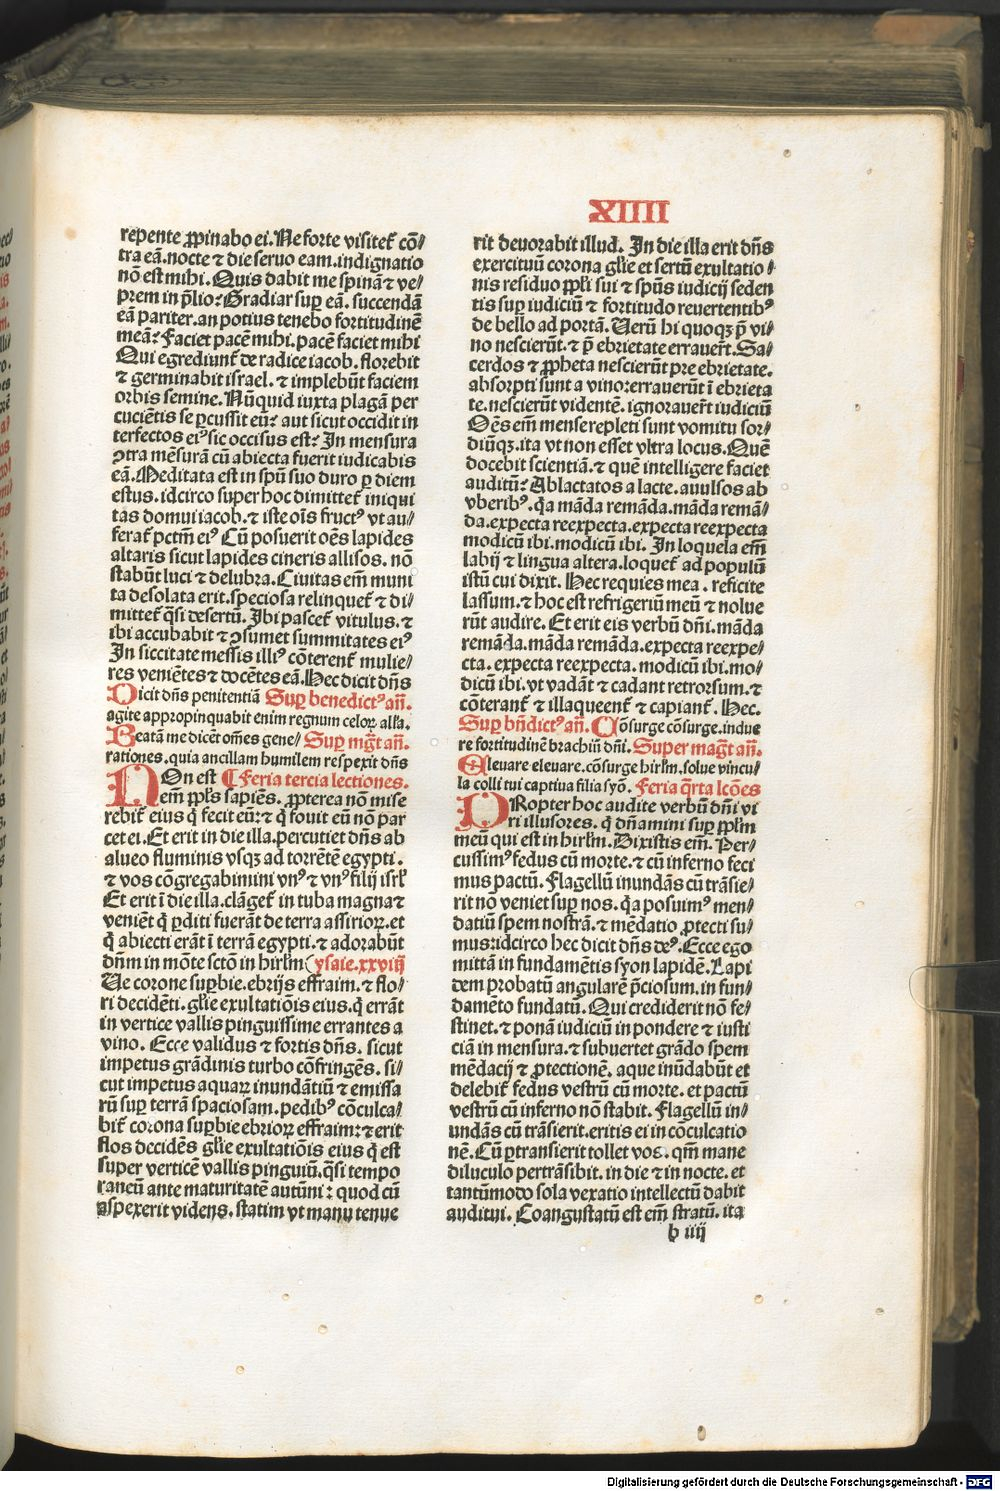 XIIII
repente ꝓpinabo ei. Ne forte visitet᷑ cō⸗
tra eā. nocte ⁊ die seruo eam. indignatio
nō est mihi. Quis dabit me spinā ⁊ ve⸗
prem in p̄lio? Gradiar suꝑ eā. succendā
eā pariter. an potius tenebo fortitudinē
meā? Faciet pacē mihi. pacē faciet mihi
Qui egrediunt᷑ de radice iacob. florebit
⁊ germinabit israel. ⁊ implebūt faciem
orbis semine. Nūquid iuxta plagā per
cuciētis se ꝑcussit eū? aut sicut occidit in
terfectos eiꝰ sic occisus est? In mensura
ꝯtra mēsurā cū abiecta fuerit iudicabis
eā. Meditata est in spū suo duro ꝑ diem
estus. idcirco super hoc dimittet᷑ iniqui
tas domui iacob. ⁊ iste oīs fructꝰ vt au⸗
ferat᷑ pctm̄ eiꝰ Cū posuerit oēs lapides
altaris sicut lapides cineris allisos. nō
stabūt luci ⁊ delubra. Ciuitas em̄ muni
ta desolata erit. speciosa relinquet᷑ ⁊ di⸗
mittet᷑ q̄si desertū. Ibi pascet᷑ vitulus. ⁊
ibi accubabit ⁊ ꝯsumet summitates eiꝰ
In siccitate messis illiꝰ cōterent᷑ mulie⸗
res veniētes ⁊ docētes eā. Hec dicit dn̄s
Dicit dn̄s penitentiā Suꝑ benedictꝰ an̄.
agite appropinquabit enim regnum celoꝝ all'a.
Beatā me dicēt om̄es gene⸗ Suꝑ mg̅t an̄.
rationes. quia ancillam humilem respexit dn̄s
NOn est ¶ Feria tercia lectiones.
em̄ ppl's sapiēs. ꝓpterea nō mise
rebit᷑ eius q̄ fecit eū: ⁊ q̄ fouit eū nō par
cet ei. Et erit in die illa. percutiet dn̄s ab
alueo fluminis vsqꝫ ad torrētē egypti.
⁊ vos cōgregabimini vnꝰ ⁊ vnꝰ filij isrl'
Et erit ī die illa. clāget᷑ in tuba magna ⁊
veniēt q̄ ꝑditi fuerāt de terra assirioꝝ. et
q̄ abiecti erāt ī terrā egypti. ⁊ adorabūt
dn̄m in mōte sctō in hirl'm (ysaie. xxviij
Ue corone suꝑbie. ebrijs effraim. ⁊ flo⸗
ri decidēti. gl'ie exultatiōis eius. q̄ errāt
in vertice vallis pinguissime errantes a
vino. Ecce validus ⁊ fortis dn̄s. sicut
impetus grādinis turbo cōfringēs. si⸗
cut impetus aquaꝝ inundātiū ⁊ emissa
rū suꝑ terrā spaciosam. pedibꝰ cōculca⸗
bit᷑ corona suꝑbie ebrioꝝ effraim: ⁊ erit
flos decidēs gl'ie exultatiōis eius q̄ est
super verticē vallis pinguiū. q̄si tempo
raneū ante maturitatē autūni: quod cū
aspexerit videns. statim vt manu tenue
rit deuorabit illud. In die illa erit dn̄s
exercituū corona gl'ie et sertū exultatio⸗
nis residuo ppl'i sui ⁊ spūs iudicij seden
tis suꝑ iudiciū ⁊ fortitudo reuertentibꝰ
de bello ad portā. Uerū hi quoqꝫ p̄ vi⸗
no nescierūt. ⁊ p̄ ebrietate errauer̄t. Sa⸗
cerdos ⁊ ꝓpheta nescierūt pre ebrietate.
absorpti sunt a vino. errauerūt ī ebrieta
te. nescierūt videntē. ignorauer̄t iudiciū
Oēs em̄ mense repleti sunt vomitu sor⸗
diūqꝫ. ita vt non esset vltra locus. Quē
docebit scientiā. ⁊ quē intelligere faciet
auditū? Ablactatos a lacte. auulsos ab
vberibꝰ. q̄a māda remāda. māda remā⸗
da. expecta reexpecta. expecta reexpecta
modicū ibi. modicū ibi. In loquela em̄
labij ⁊ lingua altera. loquet᷑ ad populū
istū cui dixit. Hec requies mea. reficite
lassum. ⁊ hoc est refrigeriū meū ⁊ nolue
rūt audire. Et erit eis verbū dn̄i. māda
remāda. māda remāda. expecta reexpe⸗
cta. expecta reexpecta. modicū ibi. mo⸗
dicū ibi. vt vadāt ⁊ cadant retrorsum. ⁊
cōterant᷑ ⁊ illaqueent᷑ ⁊ capiant᷑. Hec.
Suꝑ bn̄dictꝰ an̄. Cōsurge cōsurge. indue
re fortitudinē brachiū dn̄i. Super mag̅t an̄.
Eleuare eleuare. cōsurge hirl'm. solue vincu⸗
la colli tui captiua filia syō. Feria q̄rta lc̄ōes
PRopter hoc audite verbū dn̄i vi
ri illusores. q̄ dn̄amini suꝑ ppl'm
meū qui est in hirl'm. Dixistis em̄. Per⸗
cussimꝰ fedus cū morte. ⁊ cū inferno feci
mus pactū. Flagellū inundās cū trāsie⸗
rit nō veniet suꝑ nos. q̄a posuimꝰ men⸗
datiū spem nostrā. ⁊ mēdatio ꝓtecti su⸗
mus: idcirco hec dicit dn̄s deꝰ. Ecce ego
mittā in fundamētis syon lapidē. Lapi
dem probatū angularē p̄ciosum. in fun⸗
damēto fundatū. Qui crediderit nō fe⸗
stinet. ⁊ ponā iudiciū in pondere ⁊ iusti
ciā in mensura. ⁊ subuertet grādo spem
mēdacij ⁊ ꝓtectionē. aque inūdabūt et
delebit᷑ fedus vestrū cū morte. et pactū
vestrū cū inferno nō stabit. Flagellū in⸗
undās cū trāsierit. eritis ei in cōculcatio
nē. Cū ꝑtransierit tollet vos. qm̄ mane
diluculo pertrāsibit. in die ⁊ in nocte. et
tantūmodo sola vexatio intellectū dabit
auditui. Coangustatū est em̄ stratū. ita
b iiij
Digitalisierung gefördert durch die Deutsche Forschungsgemeinschaft - DFG